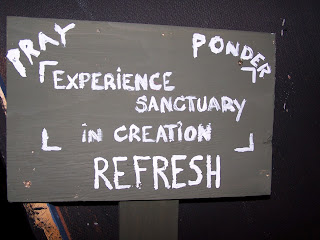 PRAY PONDER
EXPERiENCE
SANCTUARY
iN CREATiON
REFRESH